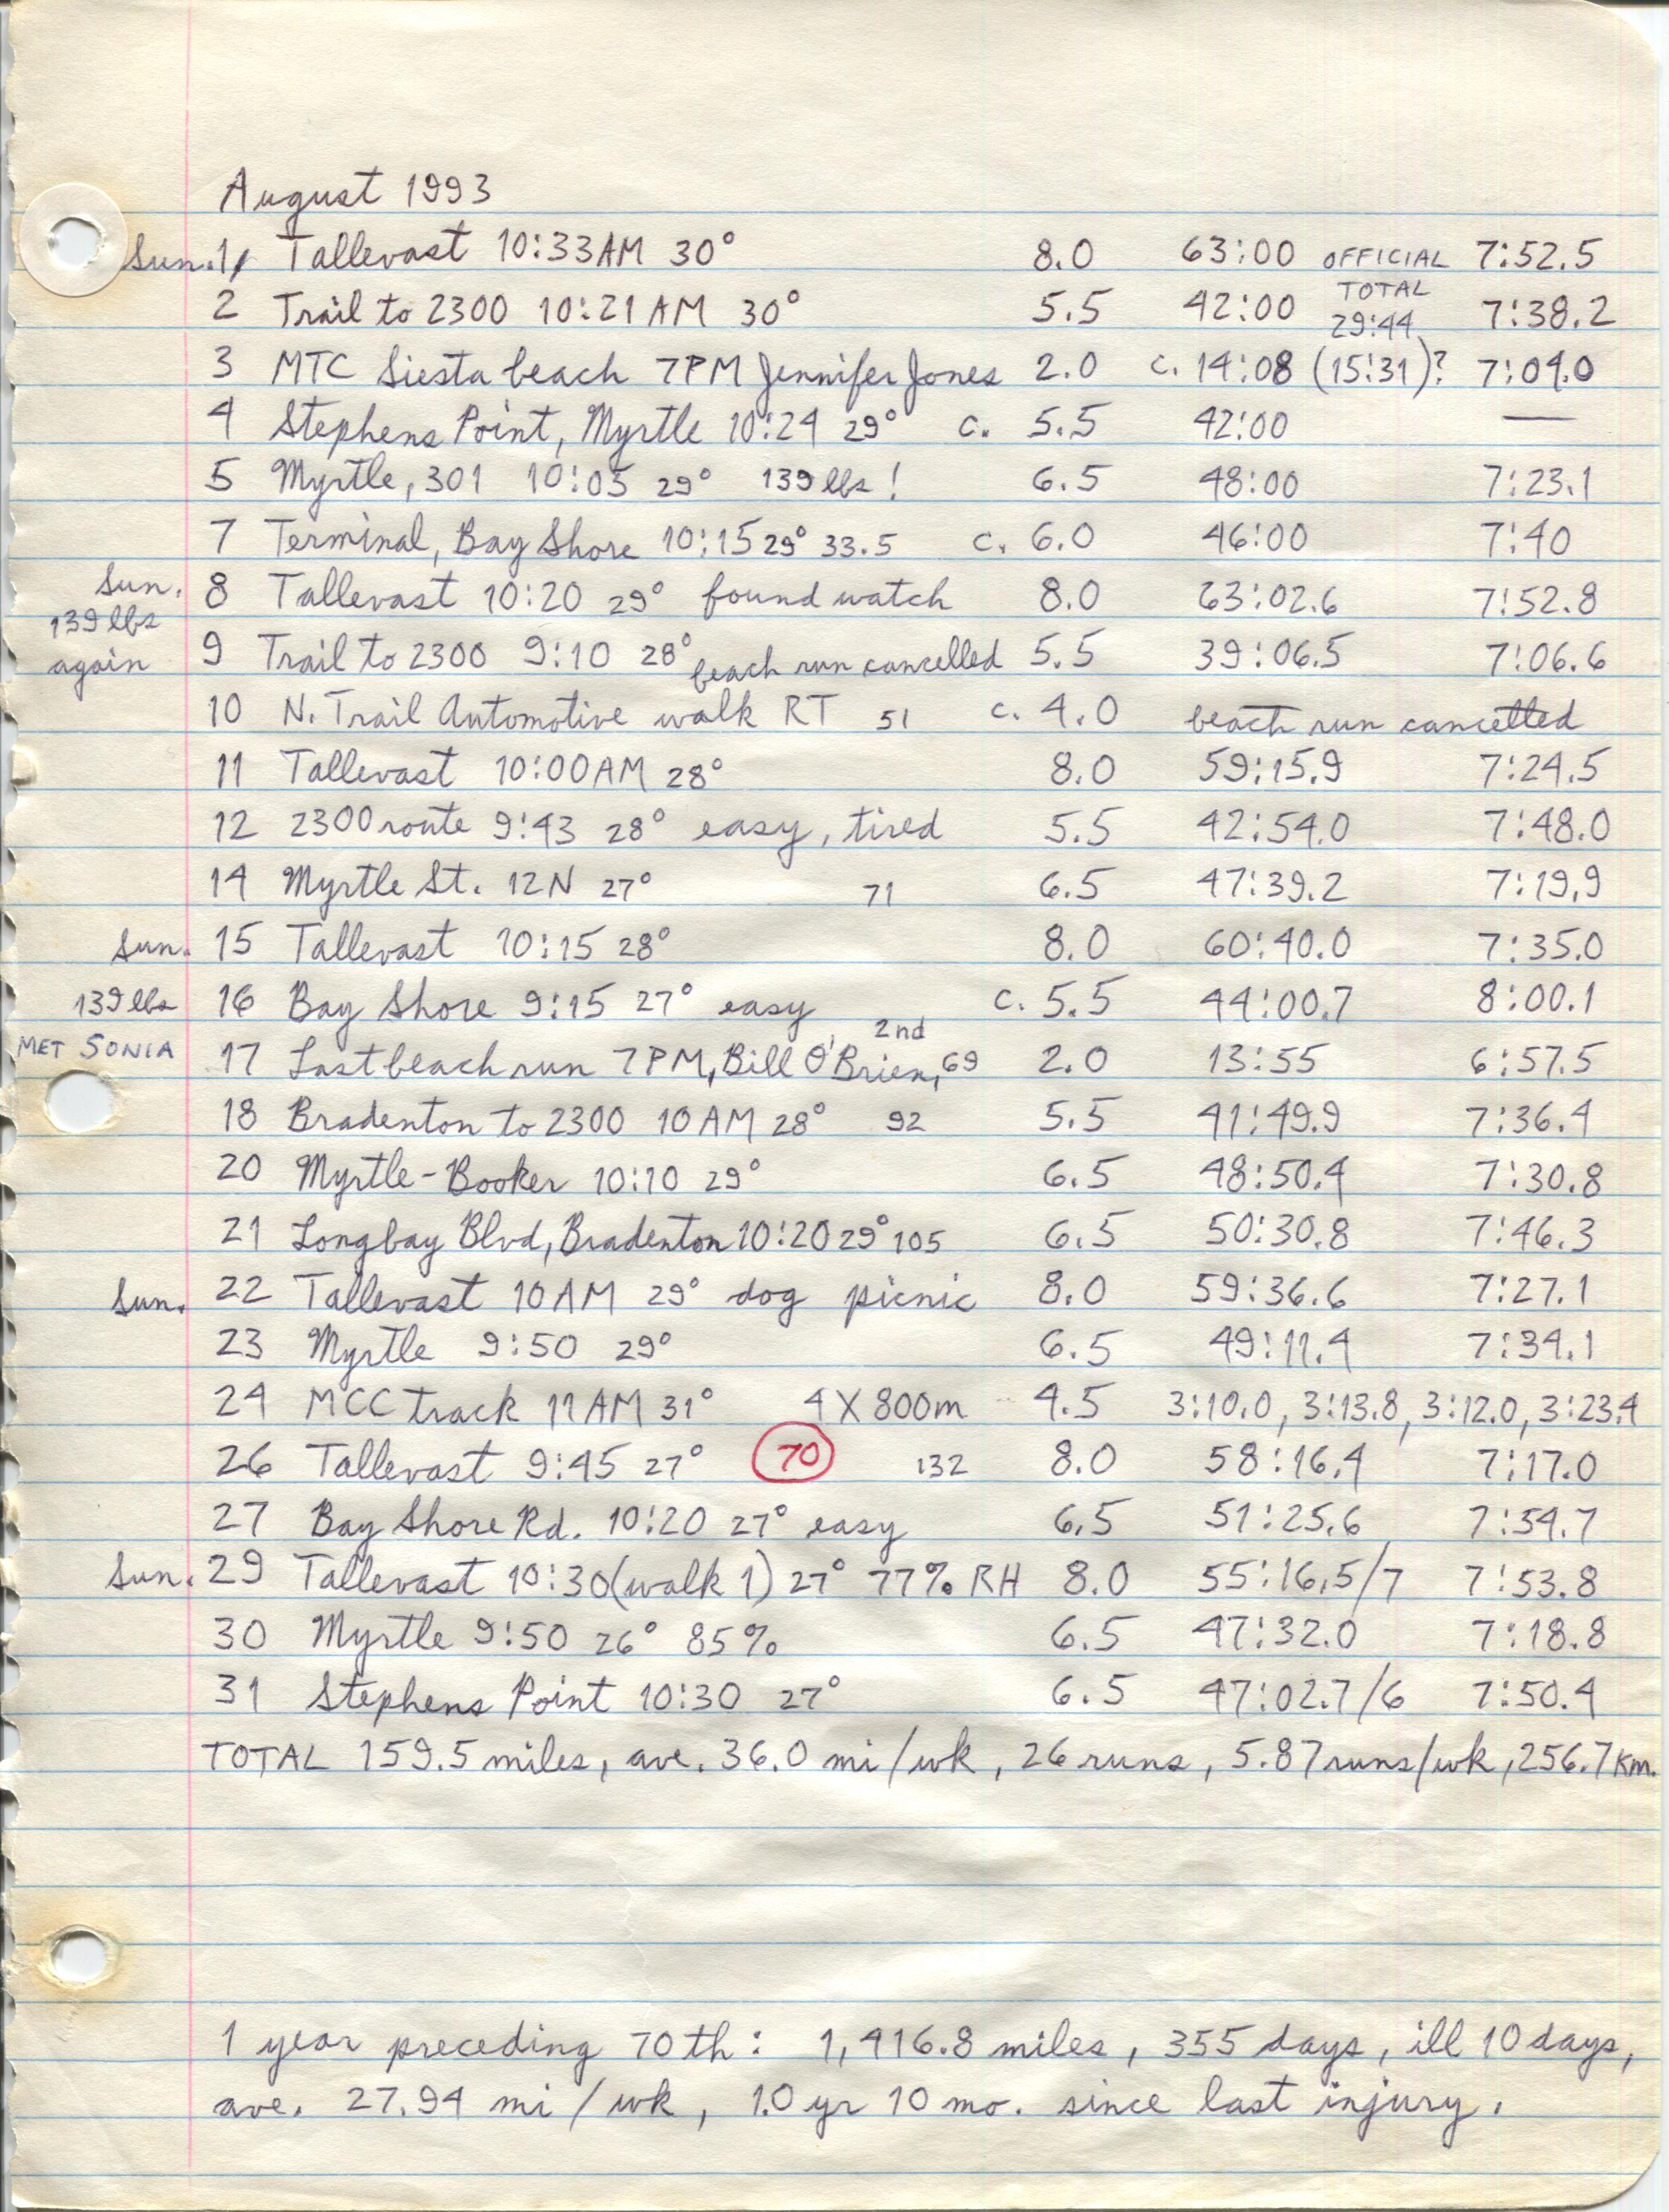 August 1993
Sun. 1, Tallevast 10:33AM 30° 8.0 63:00 OFFICIAL 7:52.5
2 Trail to 2300 10:21AM 30° 5.5 42:00 TOTAL 29:44 7:38.2
3 MTC Siesta beach 7PM Jennifer Jones 2.0 c. 14:08 (15:31)? 7:04.0
4 Stephens Point, Myrtle 10:24 29° c. 5.5 42:00 —
5 Myrtle, 301 10:05 29° 139 lbs! 6.5 48:00 7:23.1
7 Terminal, Bay Shore 10:15 29° 33.5 c. 6.0 46:00 7:40
Sun. 8 Tallevast 10:20 29° found watch 8.0 63:02.6 7:52.8
139 lbs
again 9 Trail to 2300 9:10 28° beach run cancelled 5.5 39:06.5 7:06.6
10 N. Trail Automotive walk RT 51 c. 4.0 beach run cancelled
11 Tallevast 10:00AM 28° 8.0 59:15.9 7:24.5
12 2300 route 9:43 28° easy, tired 5.5 42:54.0 7:48.0
14 Myrtle St. 12N 27° 71 6.5 47:39.2 7:19.9
Sun. 15 Tallevast 10:15 28° 8.0 60:40.0 7:35.0
139 lbs 16 Bay Shore 9:15 27° easy c. 5.5 44:00.7 8:00.1
MET SONIA 17 Last beach run 7PM, Bill O'Brien, 2nd 69 2.0 13:55 6:57.5
18 Bradenton to 2300 10AM 28° 92 5.5 41:49.9 7:36.4
20 Myrtle-Booker 10:10 29° 6.5 48:50.4 7:30.8
21 Longbay Blvd, Bradenton 10:20 29° 105 6.5 50:30.8 7:46.3
Sun. 22 Tallevast 10AM 29° dog picnic 8.0 59:36.6 7:27.1
23 Myrtle 9:50 29° 6.5 49:11.4 7:34.1
24 MCC track 11AM 31° 4X800m 4.5 3:10.0, 3:13.8, 3:12.0, 3:23.4
26 Tallevast 9:45 27° 70 132 8.0 58:16.4 7:17.0
27 Bay Shore Rd. 10:20 27° easy 6.5 51:25.6 7:54.7
Sun. 29 Tallevast 10:30 (walk 1) 27° 77% RH 8.0 55:16.5/7 7:53.8
30 Myrtle 9:50 26° 85% 6.5 47:32.0 7:18.8
31 Stephens Point 10:30 27° 6.5 47:02.7/6 7:50.4
TOTAL 159.5 miles, ave. 36.0 mi/wk, 26 runs, 5.87 runs/wk, 256.7 km.
1 year preceding 70th: 1,416.8 miles, 355 days, ill 10 days,
ave. 27.94 mi/wk, 10 yr 10 mo. since last injury.